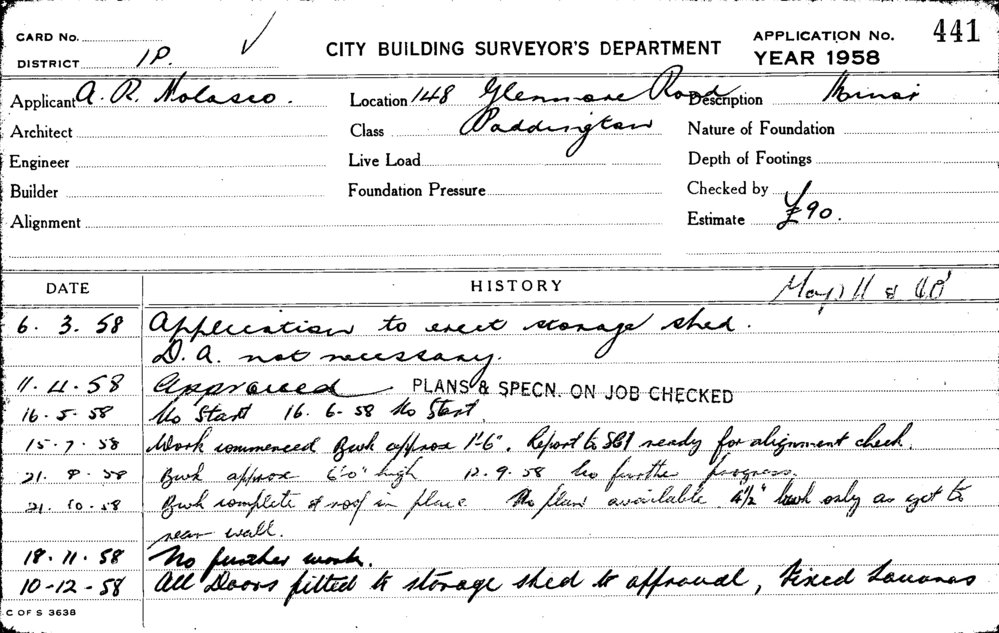 CARD No.
DISTRICT 1P. ✓
CITY BUILDING SURVEYOR'S DEPARTMENT
APPLICATION No. 441
YEAR 1958
Applicant A. R. Nolasco.
Location 148 Glenmore Road
Paddington
Description Minor
Architect
Class
Nature of Foundation
Engineer
Live Load
Depth of Footings
Builder
Foundation Pressure
Checked by
Alignment
Estimate £90.
DATE HISTORY Map 11 &
6. 3. 58 Application to erect storage shed.
D. A. not necessary.
11. 4. 58 Approved PLANS & SPECN. ON JOB CHECKED
16. 5. 58 No Start 16. 6. 58 No Start
15. 7. 58 Work commenced Bwk approx 1'6". Report to ready for alignment check.
21. 8. 58 Bwk approx 6'0" high 12. 9. 58 No further progress.
21. 10. 58 Bwk complete & roof in place No plan available 4½" bwk only as yet to
rear wall.
18. 11. 58 No further work.
10-12-58 All Doors fitted to storage shed to approval, Fixed
C OF S 3638